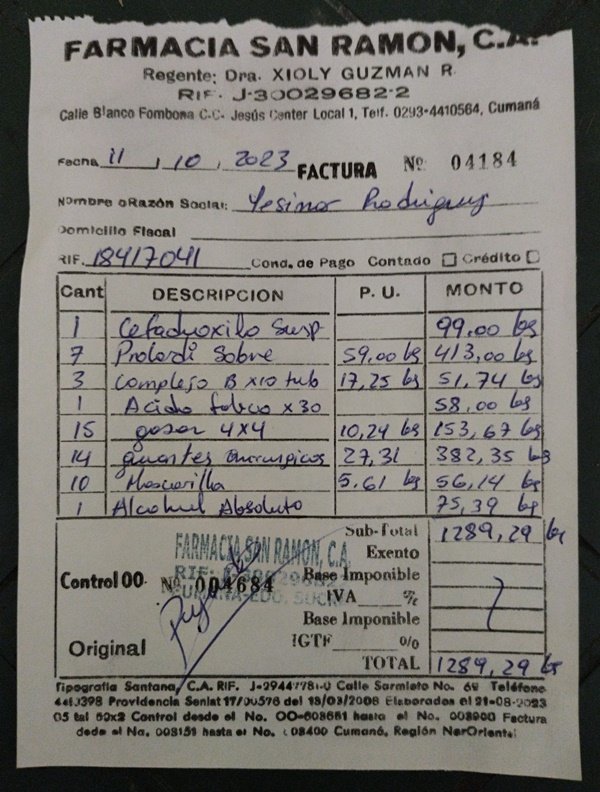 FARMACIA SAN RAMON, C.A.
Regente: Dra. XIOLY GUZMAN R.
RIF. J-30029682-2
Calle Blanco Fombona C.C. Jesús Center Local 1, Telf. 0293-4410564, Cumaná
Fecha 11 / 10 / 2023 FACTURA Nº 04184
Nombre o Razón Social: Yesinor Rodriguez
Domicilio Fiscal
RIF. 18417041 Cond. de Pago Contado Crédito
Cant DESCRIPCION P. U. MONTO
1 Cefadroxilo Susp 99.00 bs
7 Prolardi Sobre 59.00 bs 413,00 bs
3 Complejo B x10 tub 17,25 bs 51,74 bs
1 Acido folico x30 58.00 bs
15 gasas 4x4 10,24 bs 153,67 bs
14 guantes Quirurgicos 27,31 382,35 bs
10 Mascarilla 5.61 bs 56,14 bs
1 Alcohol Absoluto 75,39 bs
Sub-Total 1289,29 bs
Exento
Base Imponible
IVA %
Base Imponible
IGTF %
TOTAL 1289,29 bs
FARMACIA SAN RAMON, C.A.
RIF:
CUMANA-EDO. SUCRE
Control 00- Nº 004684
Original
Tipografia Santana, C.A. RIF. J-29447781-0 Calle Sarmieto No. 69 Teléfono
4410398 Providencia Seniat 17/00576 del 18/03/2008 Elaborados el 21-08-2023
05 tal 50x2 Control desde el No. OO-608651 hasta el No. 008900 Factura
desde el No. 008151 hasta el No. 08400 Cumaná, Región NorOriental